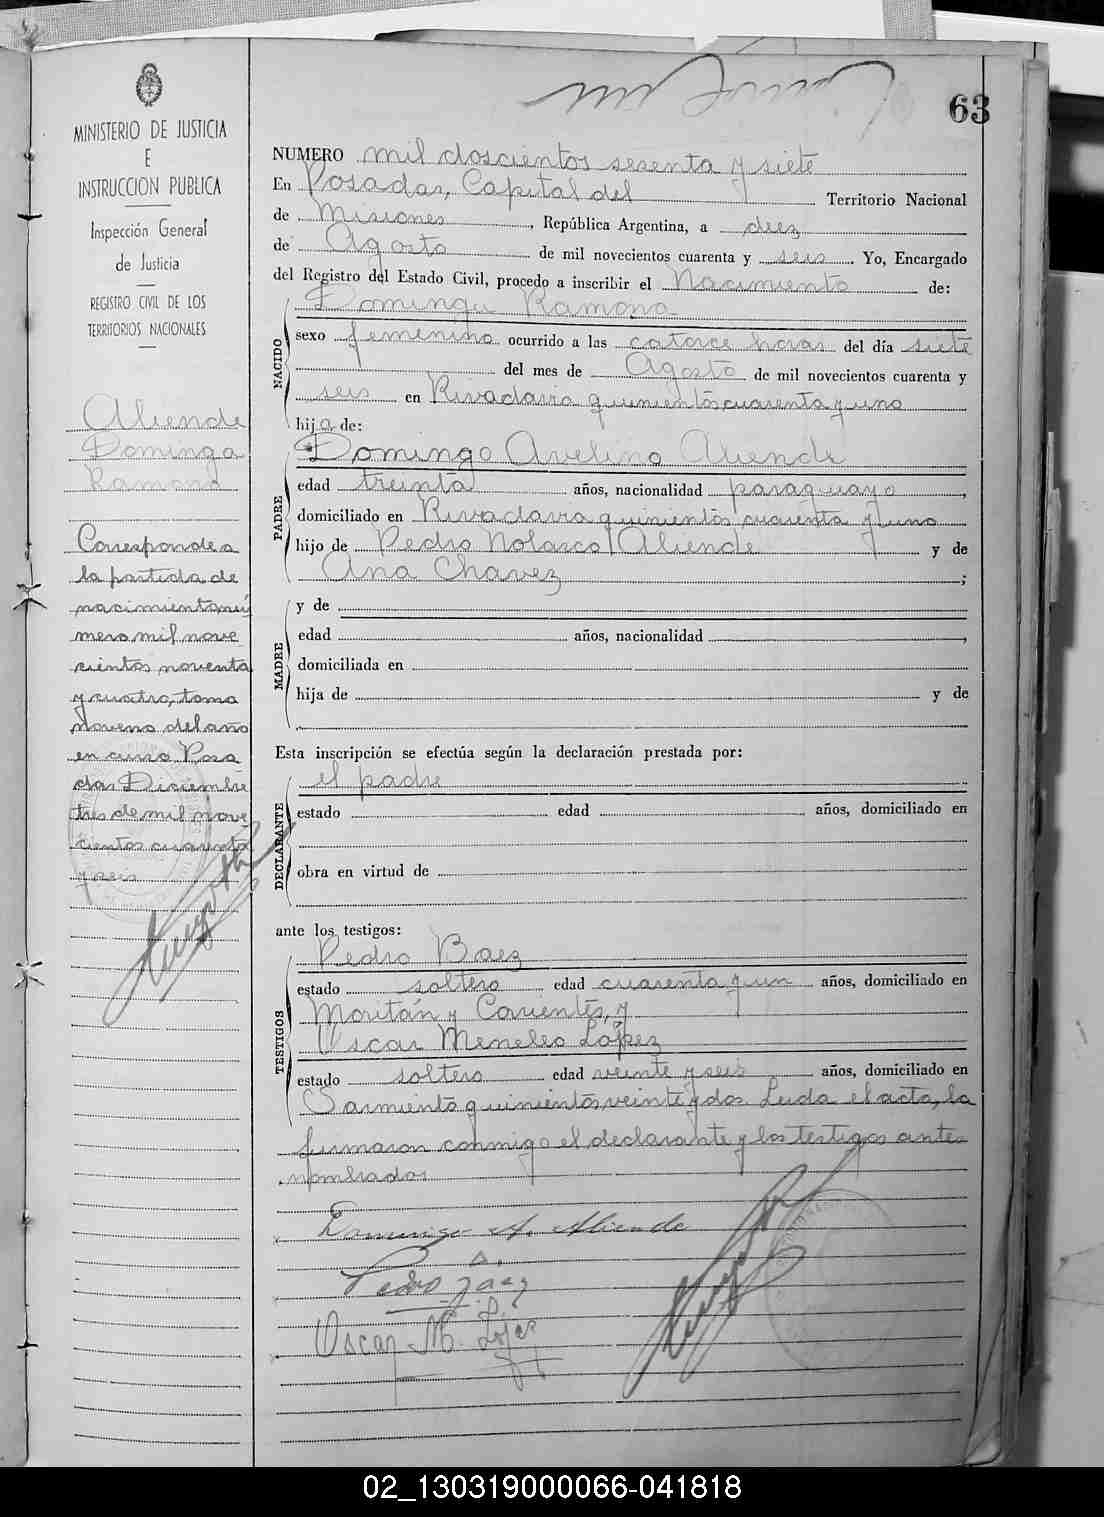 63
MINISTERIO DE JUSTICIA
E
INSTRUCCION PUBLICA
Inspección General
de Justicia
REGISTRO CIVIL DE LOS
TERRITORIOS NACIONALES
Aliende
Dominga
Ramona
Corresponde a
la partida de
nacimiento nú
mero mil nove
cientos noventa
y cuatro, tomo
noveno del año
en curso Posa
das Diciembre
tres de mil nove
cientos cuarenta
y seis
NUMERO mil doscientos sesenta y siete
En Posadas, Capital del Territorio Nacional
de Misiones, República Argentina, a diez
de Agosto de mil novecientos cuarenta y seis. Yo, Encargado
del Registro del Estado Civil, procedo a inscribir el Nacimiento de:
NACIDO
Dominga Ramona
sexo femenino ocurrido a las catorce horas del día siete
del mes de Agosto de mil novecientos cuarenta y
seis en Rivadavia quinientos cuarenta y uno
hija de:
PADRE
Domingo Avelino Aliende
edad treinta años, nacionalidad paraguayo,
domiciliado en Rivadavia quinientos cuarenta y uno
hijo de Pedro Nolasco Aliende y de
Ana Chavez;
MADRE
y de
edad años, nacionalidad ,
domiciliada en
hija de y de
Esta inscripción se efectúa según la declaración prestada por:
DECLARANTE
el padre
estado edad años, domiciliado en
obra en virtud de
ante los testigos:
TESTIGOS
Pedro Baez
estado soltero edad cuarenta y un años, domiciliado en
Moritán y Corrientes, y
Oscar Meneleo López
estado soltero edad veinte y seis años, domiciliado en
Sarmiento quinientos veinte y dos. Leida el acta, la
firmaron conmigo el declarante y los testigos ante
nombrados.
Domingo A. Aliende
Pedro Baez
Oscar M. Lopez
02_130319000066-041818